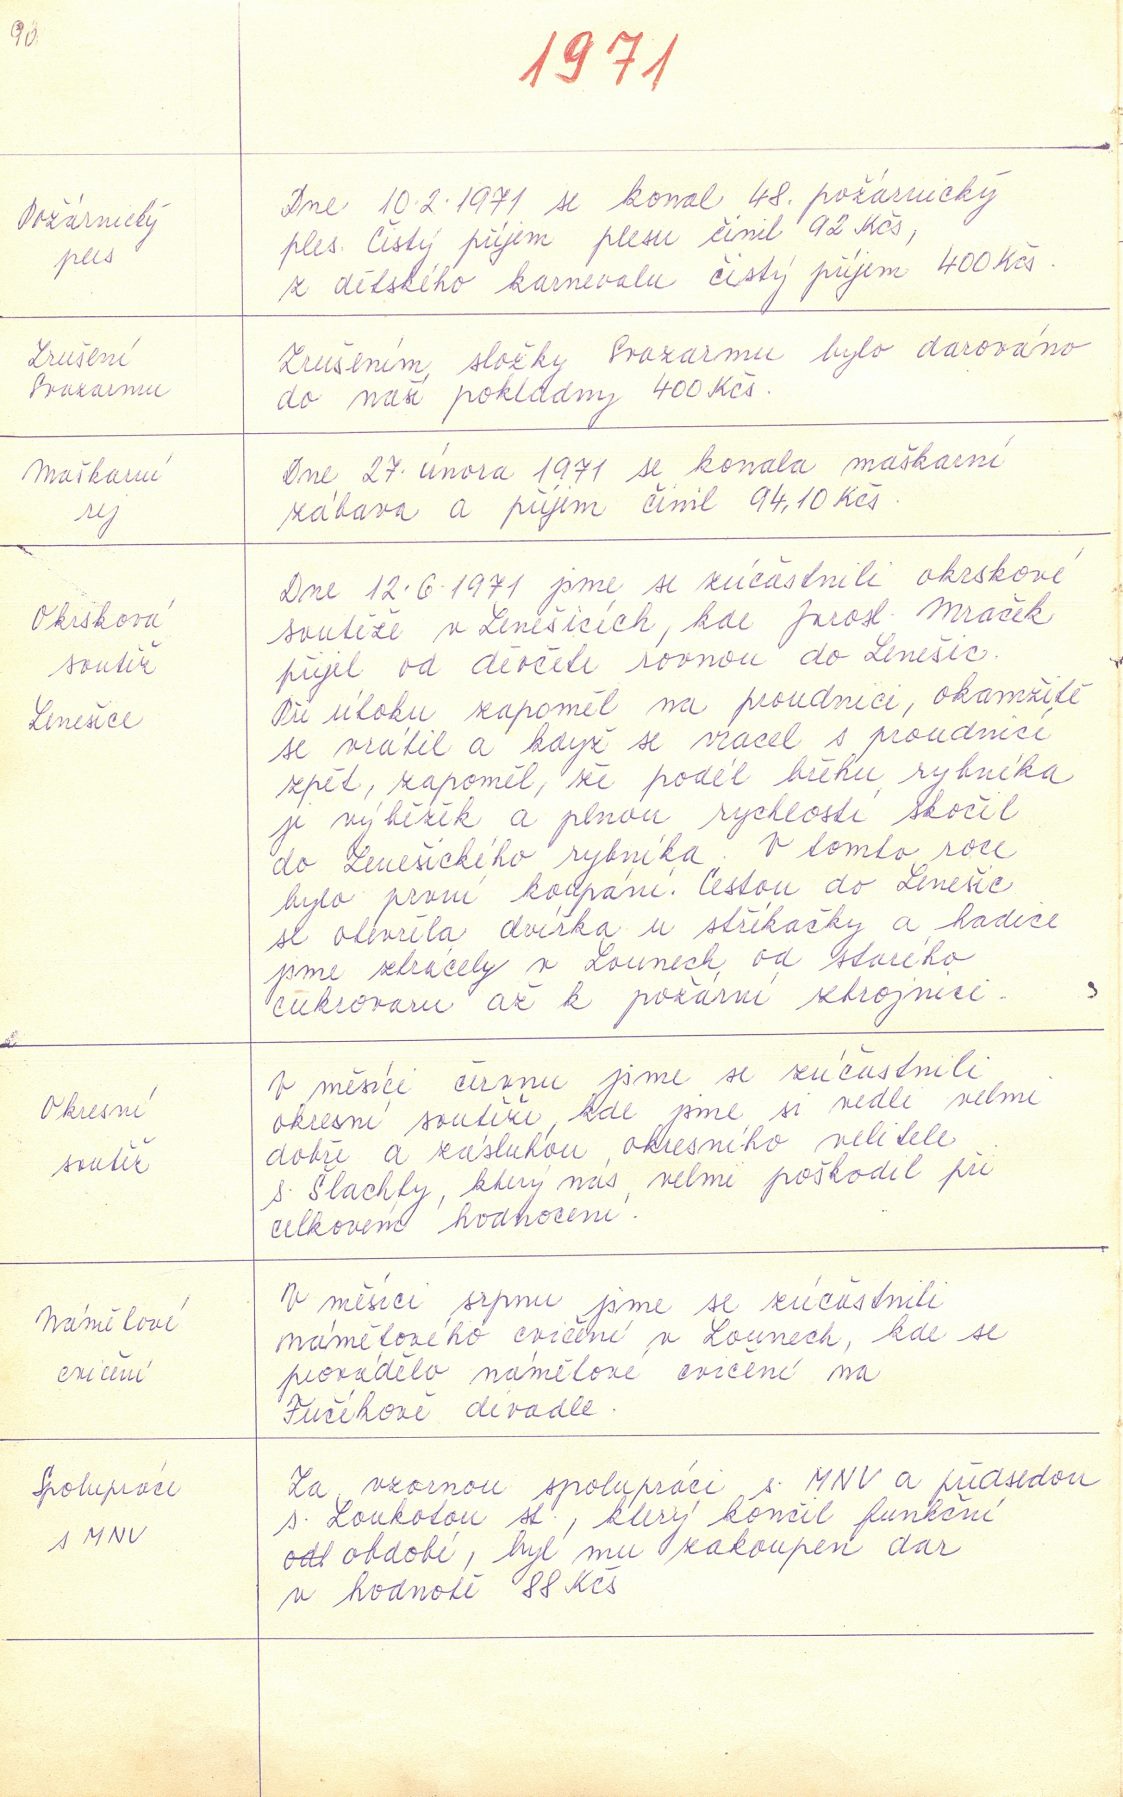 90
1971
Požárnický
ples
Dne 10.2.1971 se konal 48. požárnický
ples. Čistý příjem plesu činil 92 Kčs,
z dětského karnevalu čistý příjem 400 Kčs.
Zrušení
Svazarmu
Zrušením složky Svazarmu bylo darováno
do naší pokladny 400 Kčs.
Maškarní
rej
Dne 27. února 1971 se konala maškarní
zábava a příjem činil 94,10 Kčs.
Okrsková
soutěž
Lenešice
Dne 12.6.1971 jsme se zúčastnili okrskové
soutěže v Lenešicích, kde Jarosl. Mraček
přijel od děvčete rovnou do Lenešic.
Při útoku zapoměl na proudnici, okamžitě
se vrátil a když se vracel s proudnicí
zpět, zapoměl, že podél břehu rybníka
je výběžek a plnou rychlostí skočil
do Lenešického rybníka. V tomto roce
bylo první koupání. Cestou do Lenešic
se otevřela dvířka u stříkačky a hadice
jsme ztráceli v Lounech od starého
cukrovaru až k požární zbrojnici.
Okresní
soutěž
V měsíci červnu jsme se zúčastnili
okresní soutěže, kde jsme si vedli velmi
dobře a zásluhou okresního velitele
s. Šlachty, který nás velmi poškodil při
celkovém hodnocení.
Námětové
cvičení
V měsíci srpnu jsme se zúčastnili
námětového cvičení v Lounech, kde se
provádělo námětové cvičení na
Fučíkově divadle.
Spolupráce
s MNV
Za vzornou spolupráci s MNV a předsedou
s. Loukotou st., který končil funkční
odb období, byl mu zakoupen dar
v hodnotě 88 Kčs